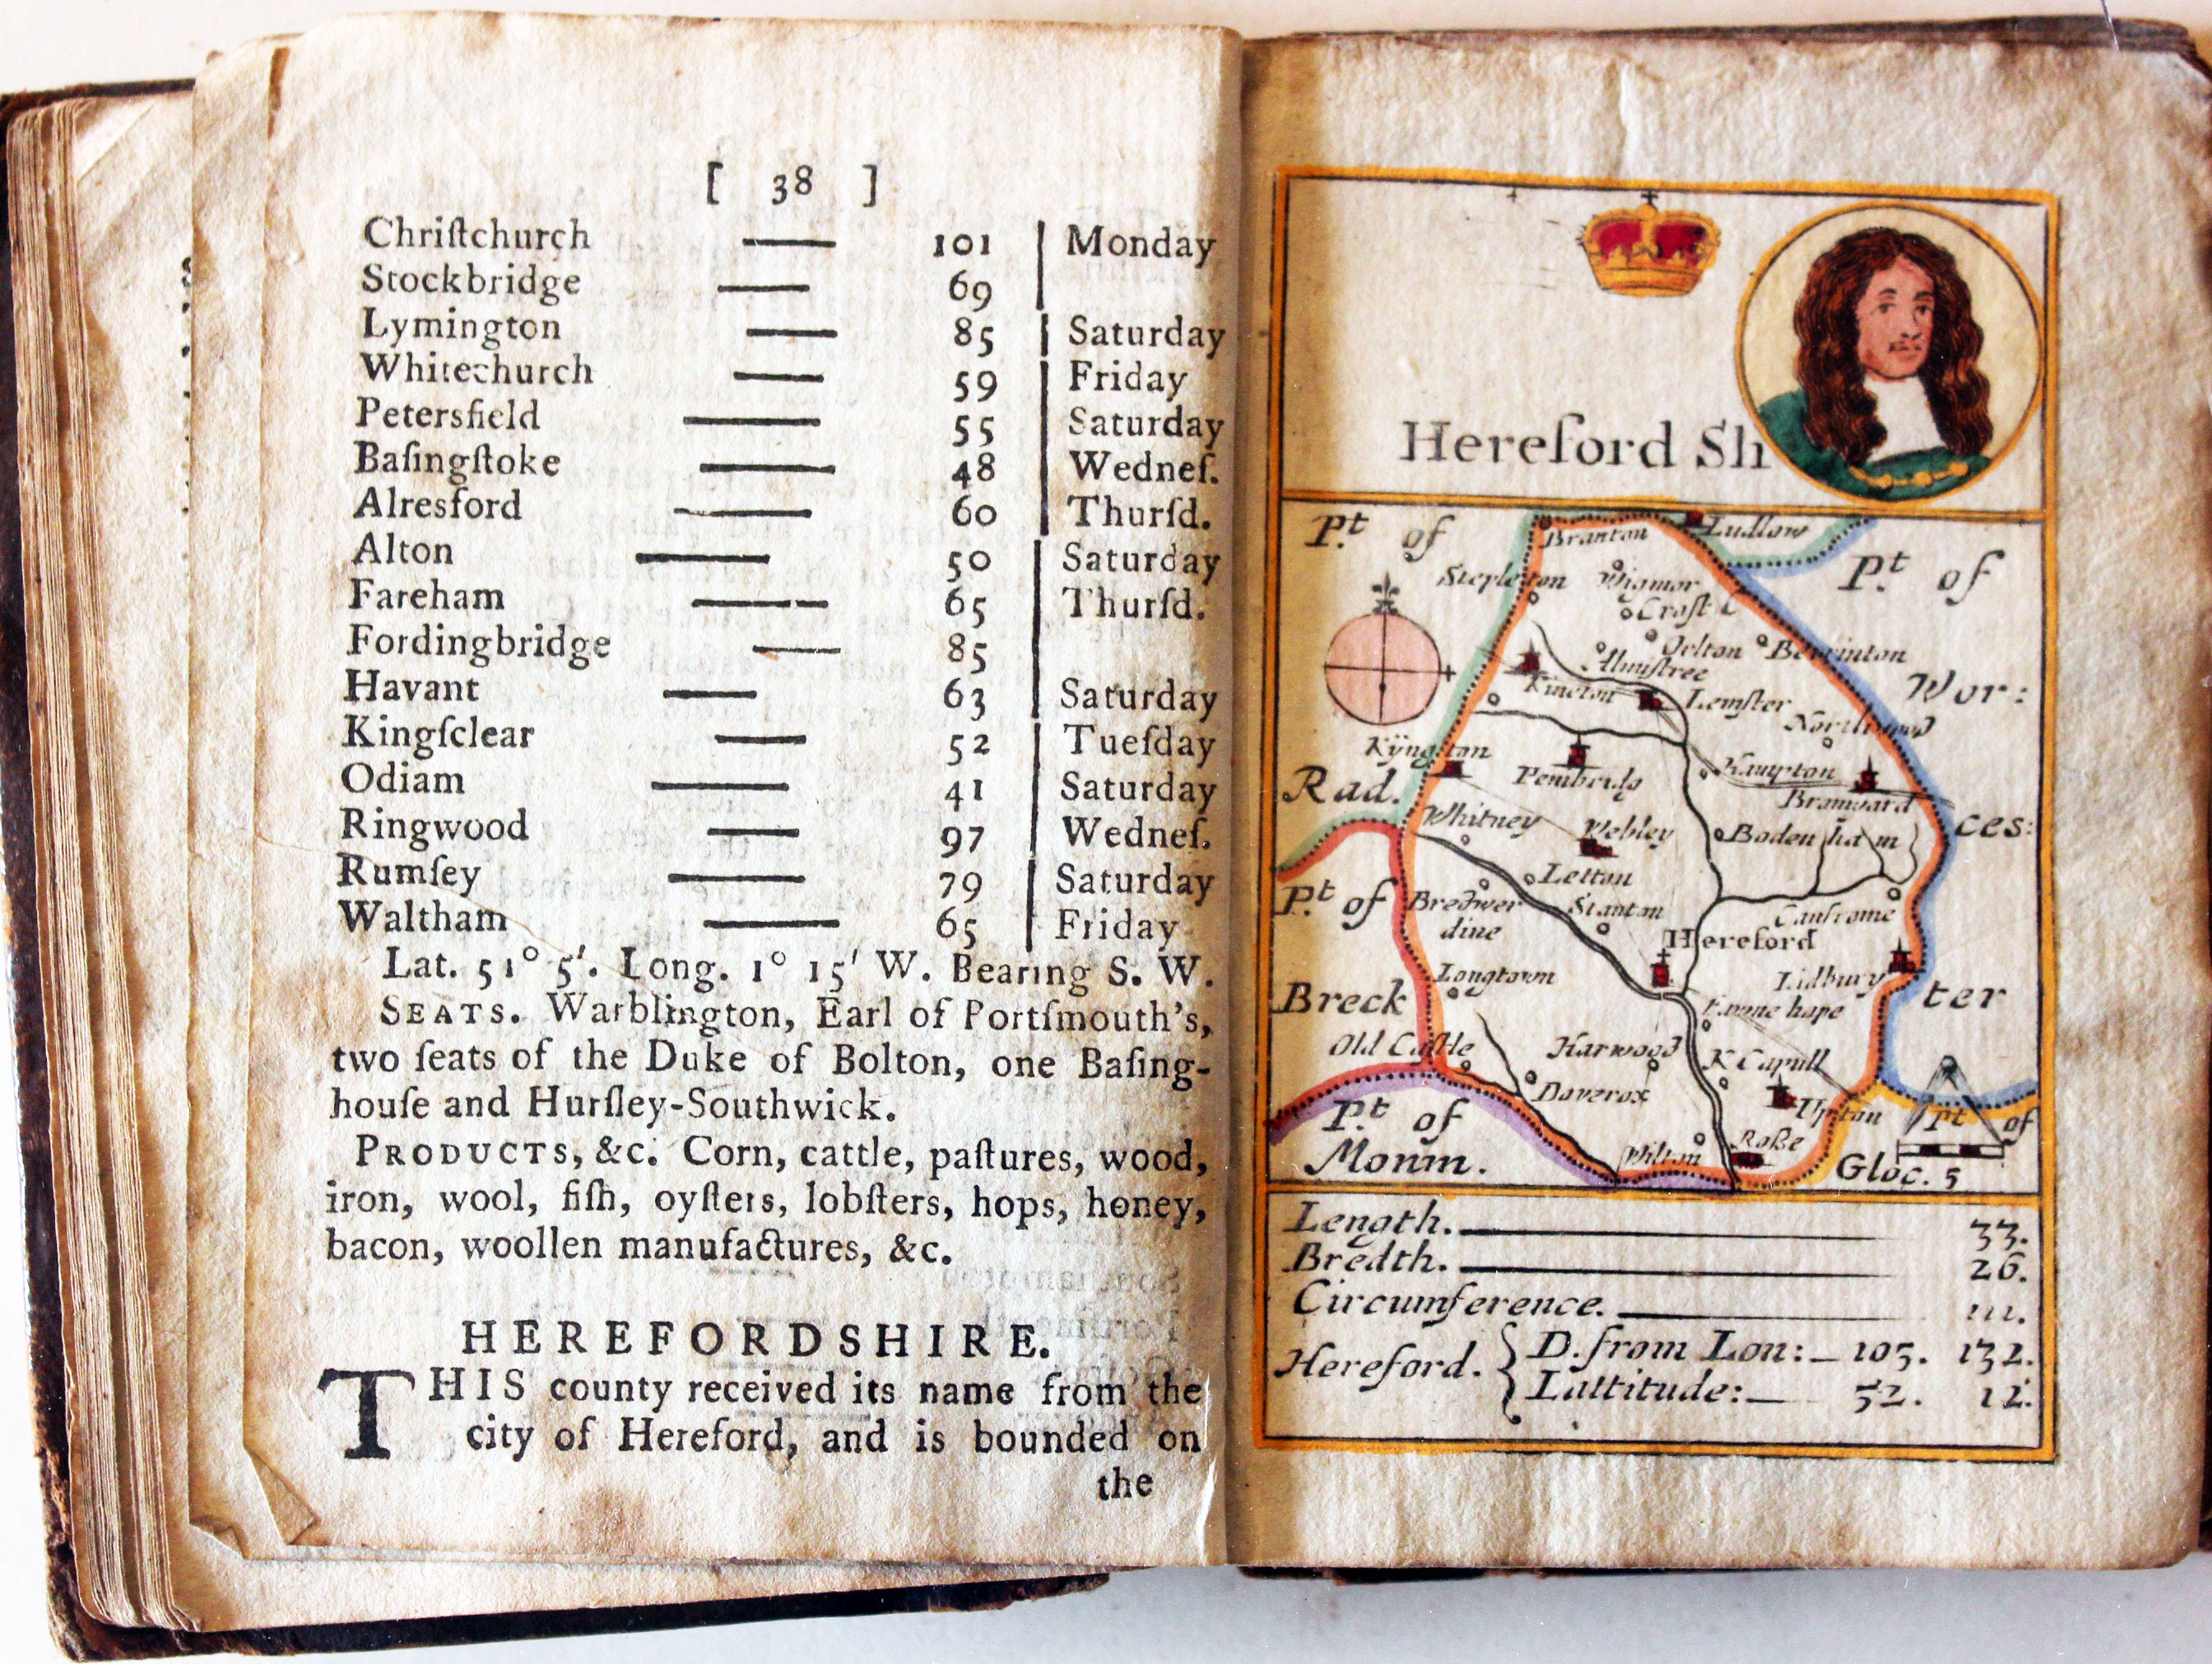 [ 38 ]
Chriſtchurch — 101 | Monday
Stockbridge — 69 |
Lymington — 85 | Saturday
Whitechurch — 59 | Friday
Petersfield — 55 | Saturday
Baſingſtoke — 48 | Wedneſ.
Alresford — 60 | Thurſd.
Alton — 50 | Saturday
Fareham — 65 | Thurſd.
Fordingbridge — 85 |
Havant — 63 | Saturday
Kingſclear — 52 | Tueſday
Odiam — 41 | Saturday
Ringwood — 97 | Wedneſ.
Rumſey — 79 | Saturday
Waltham — 65 | Friday
Lat. 51° 5′. Long. 1° 15′ W. Bearing S. W.
SEATS. Warblington, Earl of Portſmouth's,
two ſeats of the Duke of Bolton, one Baſing-
houſe and Hurſley-Southwick.
PRODUCTS, &c. Corn, cattle, paſtures, wood,
iron, wool, fiſh, oyſters, lobſters, hops, honey,
bacon, woollen manufactures, &c.
HEREFORDSHIRE.
THIS county received its name from the
city of Hereford, and is bounded on
the
Hereford Sh
Pt of
Branton
Ludlow
Pt of
Stepleton
Wigmor
Croft
Orlton
Berrinton
Almſtree
Kincton
Lemſter
Wor:
Kÿngston
Rad.
Hampton
Bromyard
Whitney
Webley
Bodenham
ces:
Letton
Pt of
Bredwer
dine
Stanton
Canfrome
Hereford
Longtown
Lidbury
Breck
ter
Fawne hope
Old Caſtle
Harwood
K Capull
Dorerox
Upton
Pt of
Monm.
Wilton
Roße
Pt of
Gloc. 5
Length. 33.
Bredth. 26.
Circumference. 111.
Hereford. { D. from Lon: — 105. 132.
Lattitude: — 52. 12.